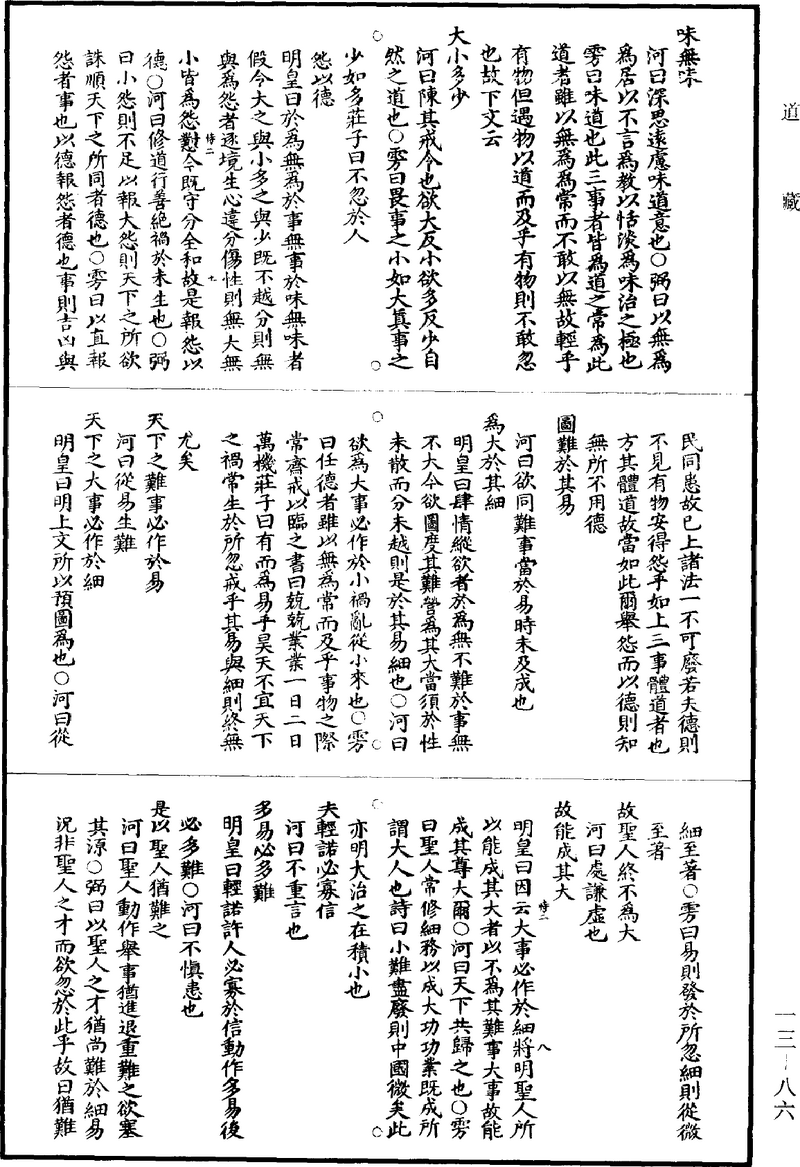 道藏
味無味
河曰深思遠慮味道意也○弼曰以無為
為居以不言為教以恬淡為味治之極也
雱曰味道也此三事者皆為道之常為此
道者雖以無為為常而不敢以無故輕乎
有物但遇物以道而及乎有物則不敢忽
也故下文云
大小多少
河曰陳其戒令也欲大反小欲多反少自
然之道也○雱曰畏事之小如大真事之
少如多莊子曰不忽於人
怨以德
明皇曰於為無為於事無事於味無味者
假令大之與小多之與少既不越分則無
與為怨者逐境生心違分傷性則無大無
小皆為怨懟今既守分全和故是報怨以
德○河曰修道行善絕禍於未生也○弼
曰小怨則不足以報大怨則天下之所欲
誅順天下之所同者德也○雱曰以直報
怨者事也以德報怨者德也事則吉凶與
民同患故已上諸法一不可廢若夫德則
不見有物安得怨乎如上三事體道者也
方其體道故當如此爾舉怨而以德則知
無所不用德
圖難於其易
河曰欲同難事當於易時未及成也
為大於其細
明皇曰肆情縱欲者於為無不難於事無
不大今欲圖度其難營為其大當須於性
未散而分未越則是於其易細也○河曰
欲為大事必作於小禍亂從小來也○雱
曰任德者雖以無為常而及乎事物之際
常齋戒以臨之書曰兢兢業業一日二日
萬機莊子曰有而為易乎昊天不宜天下
之禍常生於所忽戒乎其易與細則終無
尤矣
天下之難事必作於易
河曰從易生難
天下之大事必作於細
明皇曰明上文所以預圖為也○河曰從
細至著○雱曰易則發於所忽細則從微
至著
故聖人終不為大
河曰處謙虛也
故能成其大
明皇曰因云大事必作於細將明聖人所
以能成其大者以不為其難事大事故能
成其尊大爾○河曰天下共歸之也○雱
曰聖人常修細務以成大功功業既成所
謂大人也詩曰小難盡廢則中國微矣此
亦明大治之在積小也
夫輕諾必寡信
河曰不重言也
多易必多難
明皇曰輕諾許人必寡於信動作多易後
必多難○河曰不慎患也
是以聖人猶難之
河曰聖人動作舉事猶進退重難之欲塞
其源○弼曰以聖人之才猶尚難於細易
況非聖人之才而欲忽於此乎故曰猶難
一三-八六